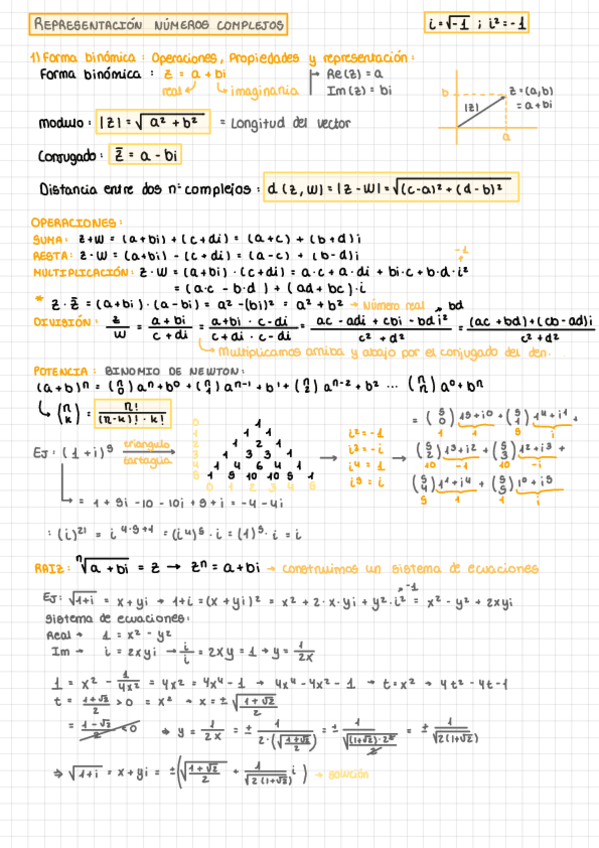 REPRESENTACIÓN NÚMEROS COMPLEJOS
i=√-1 ; i²=-1
1) Forma binómica : Operaciones, Propiedades y representación:
Forma binómica : z = a + bi
Re(z) = a
Im(z) = bi
real
imaginaria
b
|z|
z=(a,b)
= a+bi
a
modulo: |z| = √a² + b² = Longitud del vector
Conjugado: z̄ = a - bi
Distancia entre dos nº complejos: d (z,w) = |z - w| = √(c-a)² + (d-b)²
OPERACIONES:
SUMA: z+w = (a+bi) + (c+di) = (a+c) + (b+d)i
RESTA: z-w = (a+bi) - (c+di) = (a-c) + (b-d)i
MULTIPLICACIÓN: z·w = (a+bi)·(c+di) = a·c + a·di + bi·c + b·d·i²
-1
= (a·c - b·d) + (ad + bc)·i
* z·z̄ = (a+bi)·(a-bi) = a² - (bi)² = a² + b² → Número real
bd
DIVISIÓN: z/w = a+bi/c+di = a+bi/c+di · c-di/c-di = ac - adi + cbi - bdi²/c² + d² = (ac + bd) + (cb - ad)i/c² + d²
Multiplicamos arriba y abajo por el conjugado del den.
POTENCIA: BINOMIO DE NEWTON:
(a+b)ⁿ = (n 0) aⁿ + b⁰ + (n 1) aⁿ⁻¹ + b¹ + (n 2) aⁿ⁻² + b² ... (n n) a⁰ + bⁿ
(n k) = n!/(n-k)!·k!
EJ: (1+i)⁵ triangulo tartaglia
0 1
1 1 1
2 1 2 1
3 1 3 3 1
4 1 4 6 4 1
5 1 5 10 10 5 1
0 1 2 3 4 5
i² = -1
i³ = -i
i⁴ = 1
i⁵ = i
= (5 0) 1⁵ + i⁰ + (5 1) 1⁴ + i¹ +
1 1 5 i
(5 2) 1³ + i² + (5 3) 1² + i³ +
10 -1 10 -i
(5 4) 1¹ + i⁴ + (5 5) 1⁰ + i⁵
5 1 1 i
= 1 + 5i - 10 - 10i + 5 + i = -4 - 4i
: (i)²¹ = i⁴·⁵⁺¹ = (i⁴)⁵·i = (1)⁵·i = i
RAIZ: ⁿ√a + bi = z → zⁿ = a + bi → construimos un sistema de ecuaciones
EJ: √1+i = x + yi → 1+i = (x + yi)² = x² + 2·x·yi + y²·i² = x² - y² + 2xyi
-1
Sistema de ecuaciones:
Real → 1 = x² - y²
Im → i = 2xyi → i/i = 2xy = 1 → y = 1/2x
1 = x² - 1/4x² = 4x² = 4x⁴ - 1 → 4x⁴ - 4x² - 1 → t = x² → 4t² - 4t - 1
t = 1+√2/2 > 0 = x² → x = ± √1+√2/2
= 1-√2/2 < 0 → y = 1/2x = ± 1/2·(√1+√2/2) = ± 1/√(1+√2)·2²/2 = ± 1/√2(1+√2)
⇒ √1+i = x + yi = ± (√1+√2/2 + 1/√2(1+√2) i) → solución